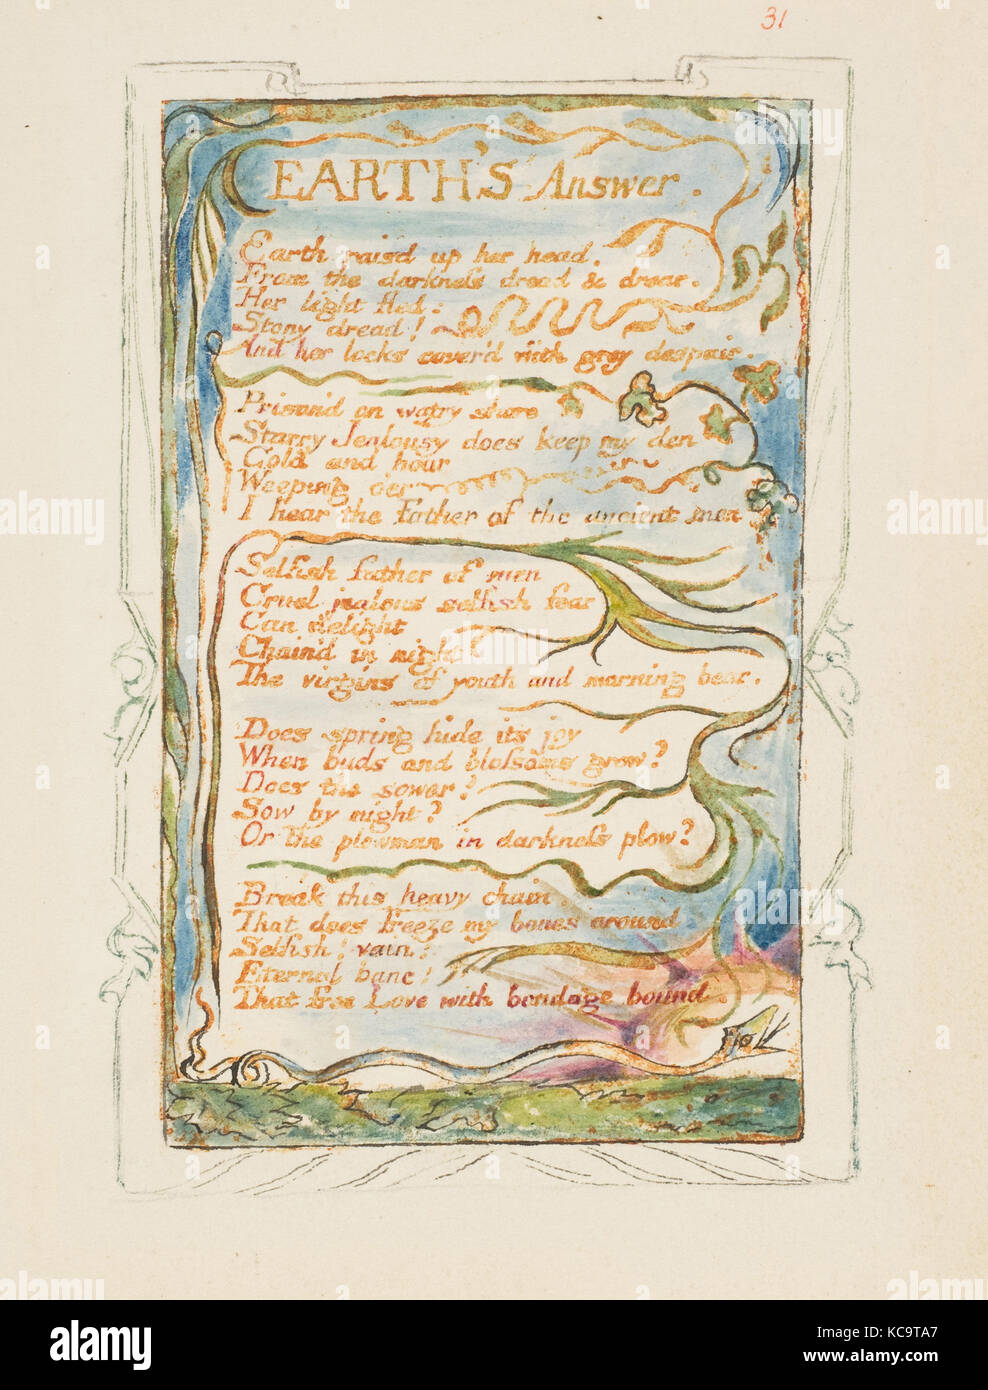 31
EARTH'S Answer.
Earth rais'd up her head.
From the darkness dread & drear.
Her light fled:
Stony dread!
And her locks cover'd with grey despair.
Prison'd on watry shore
Starry Jealousy does keep my den
Cold and hoar
Weeping o'er
I hear the Father of the ancient men
Selfish father of men
Cruel jealous selfish fear
Can delight
Chain'd in night
The virgins of youth and morning bear.
Does spring hide its joy
When buds and blossoms grow?
Does the sower?
Sow by night?
Or the plowman in darkness plow?
Break this heavy chain.
That does freeze my bones around
Selfish! vain!
Eternal bane!
That free Love with bondage bound.
alamy
Image ID: KC9TA7
www.alamy.com